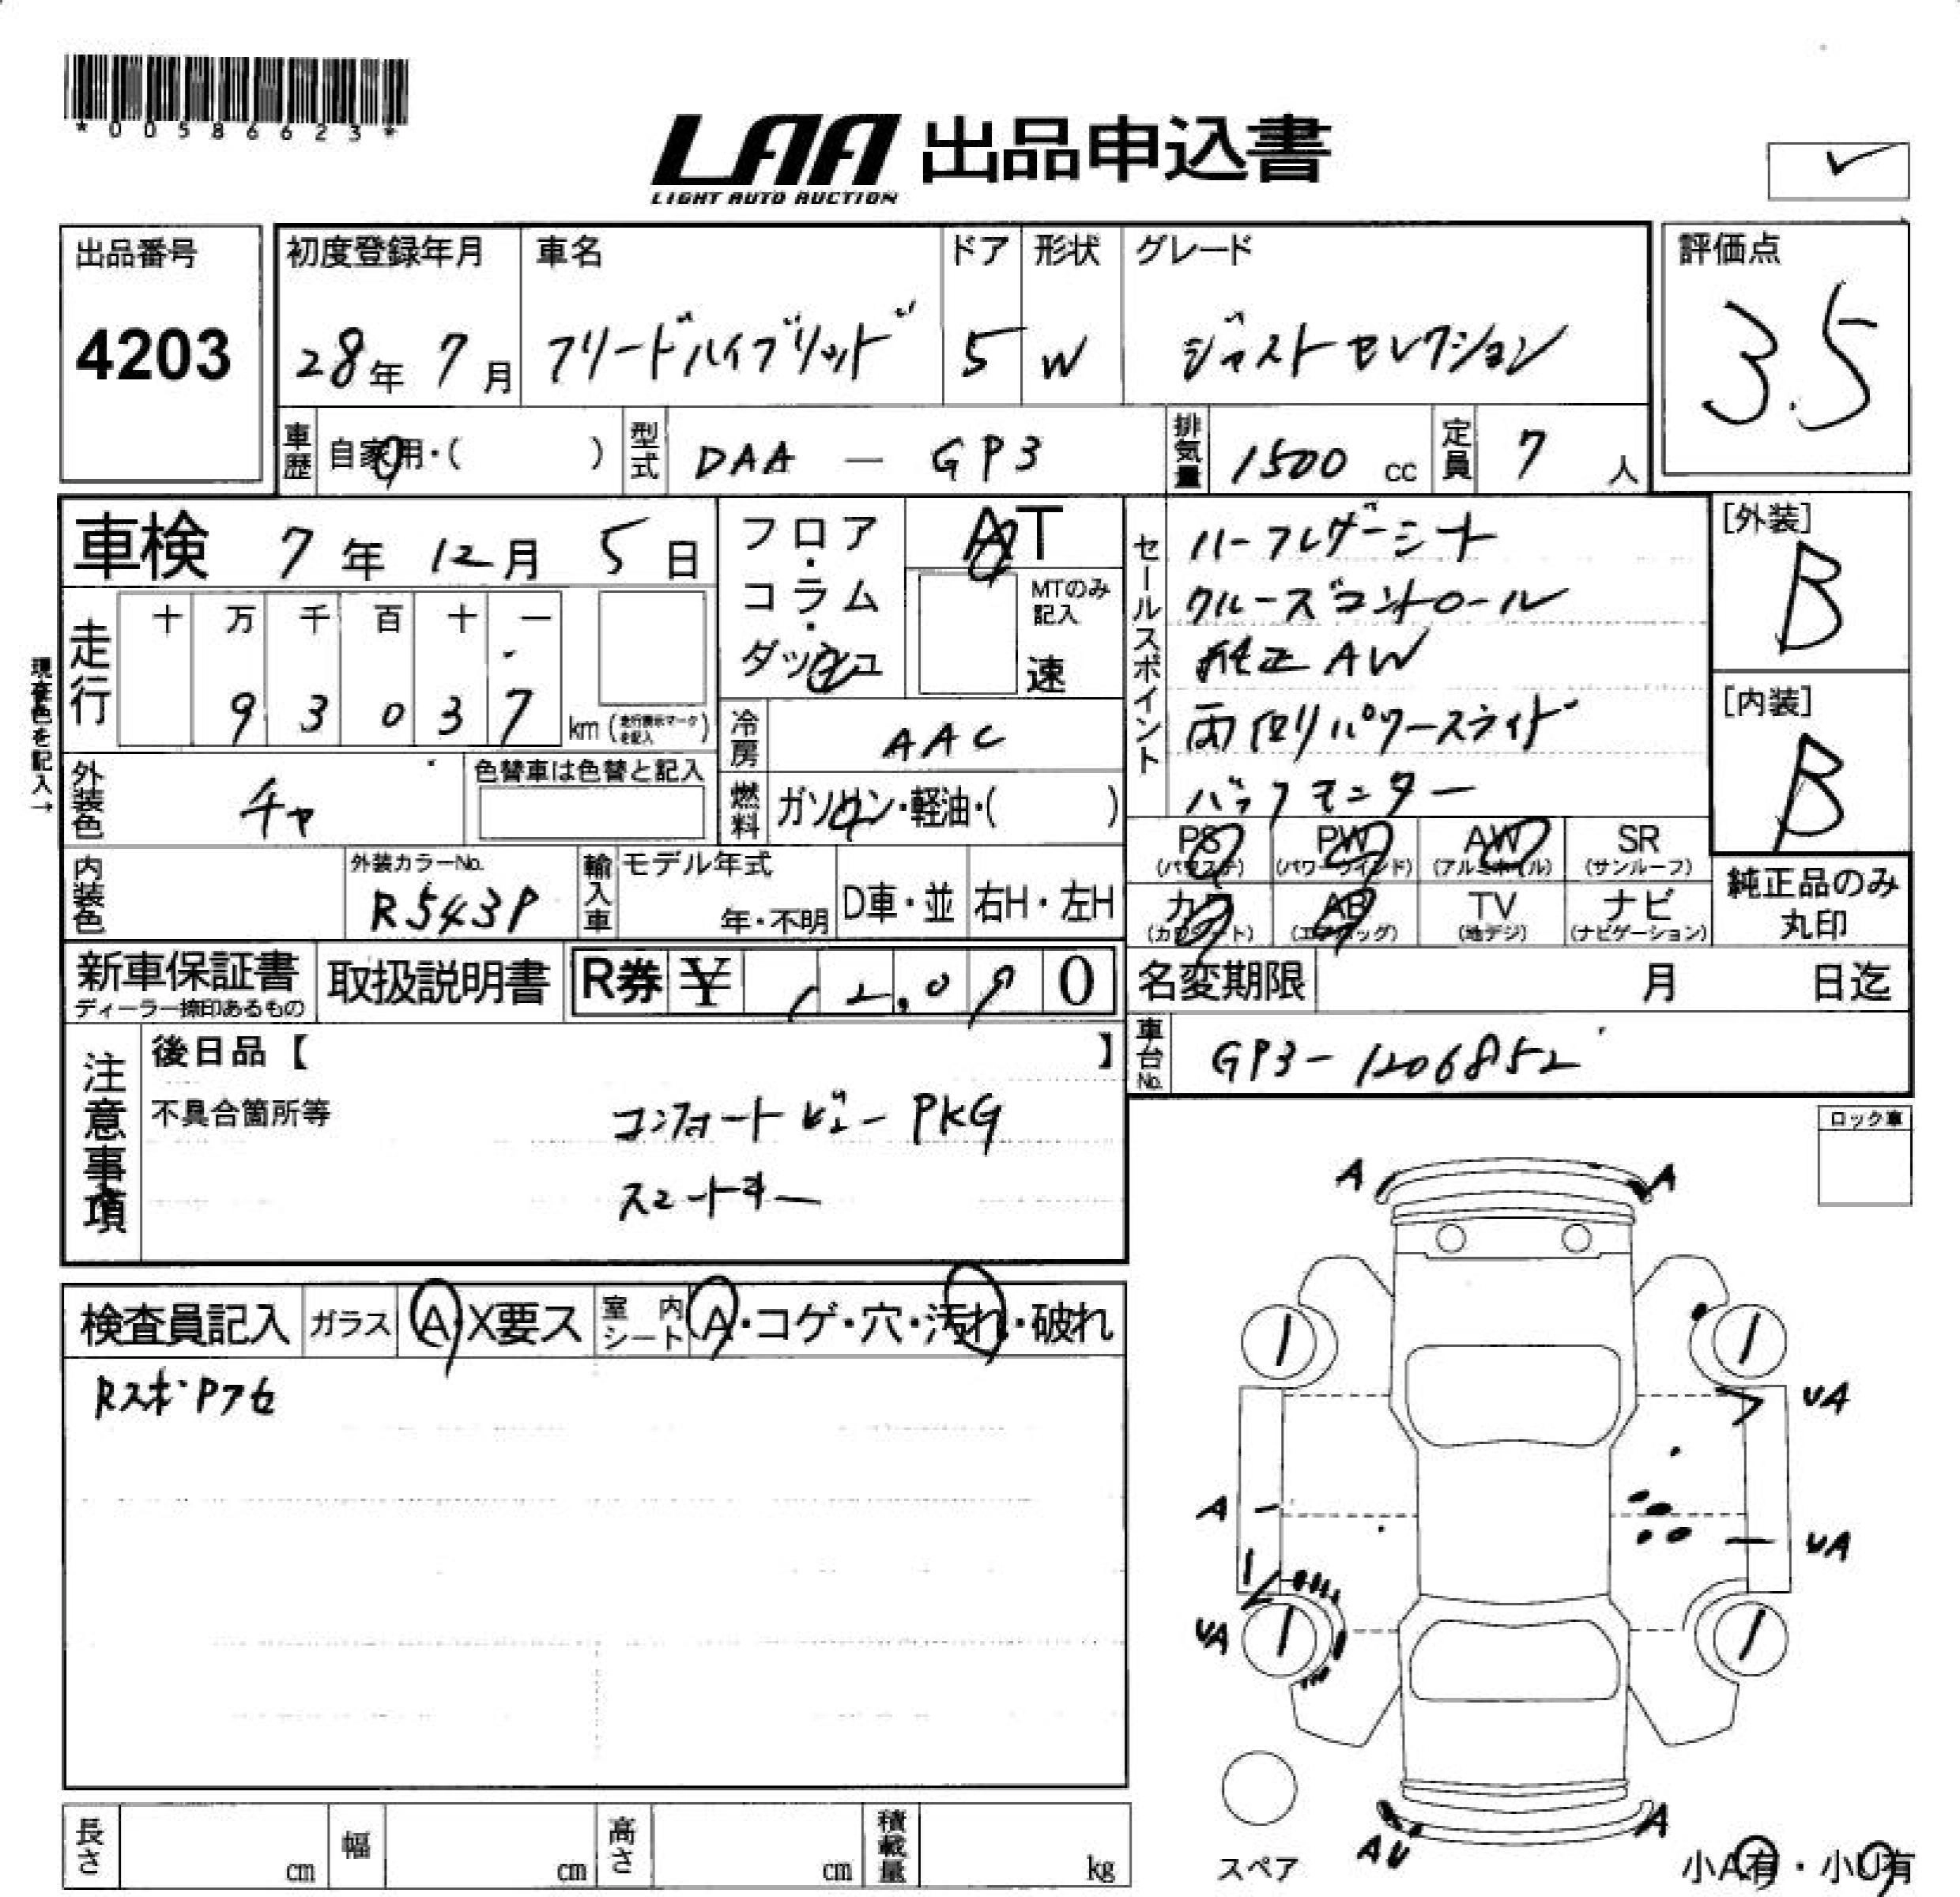 *00586623*
LAA 出品申込書
LIGHT AUTO AUCTION
出品番号
4203
初度登録年月
28年 7月
車名
フリードハイブリッド
ドア
5
形状
W
グレード
ジャストセレクション
評価点
3.5
車歴 自家用・( )
型式 DAA - GP3
排気量 1500 cc
定員 7 人
車検 7年 12月 5日
現在色を記入→
走行
十 万 千 百 十 一
9 3 0 3 7
km (走行表示マークを記入)
フロア・コラム・ダッシュ
AT
MTのみ記入
速
冷房 AAC
燃料 ガソリン・軽油・( )
外装色 チャ
色替車は色替と記入
内装色
外装カラーNo.
R543P
輸入車
モデル年式
年・不明
D車・並
右H・左H
セールスポイント
ハーフレザーシート
クルーズコントロール
純正AW
両側パワースライド
バックモニター
[外装]
B
[内装]
B
PS (パワステ)
PW (パワーウインド)
AW (アルミホイル)
SR (サンルーフ)
カワ (カワシート)
AB (エアバッグ)
TV (地デジ)
ナビ (ナビゲーション)
純正品のみ丸印
新車保証書
ディーラー捺印あるもの
取扱説明書
R券 ¥ 0
名変期限 月 日迄
車台No. GP3-1206852
注意事項
後日品【 】
不具合箇所等
コンフォートビューPKG
スマートキー
ロック車
検査員記入
ガラス A・X要ス
室内シート A・コゲ・穴・汚れ・破れ
Rスポ Pフセ
A A
UA
A
UA
UA
AU A
スペア
小A有・小U有
長さ cm
幅 cm
高さ cm
積載量 kg